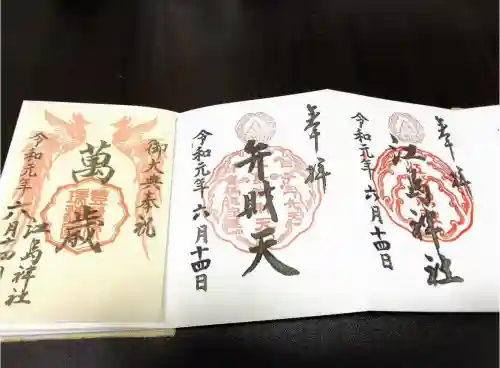 奉拝
江島神社
令和元年六月十四日
奉拝
弁財天
令和元年六月十四日
御大典奉祝
萬歳
令和元年
六月十四日
江島神社